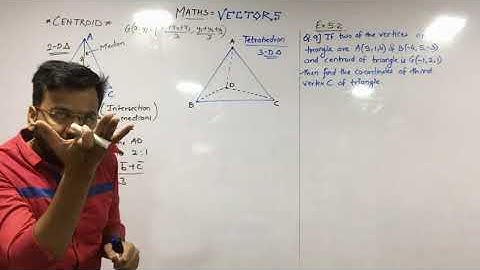 MATHS = VECTORS
* CENTROID *
2-D Δ
A
Median
C
( Intersection
medians)
AD
2:1
3
Tetrahedron
3-D Δ
A
D
B
C
Ex 5.2
Q.9] If two of the vertices of
triangle are A(3,1,4) & B(-4,5,-3)
and centroid of triangle is G(-1,2,1)
then find the coordinates of third
vertex C of triangle.